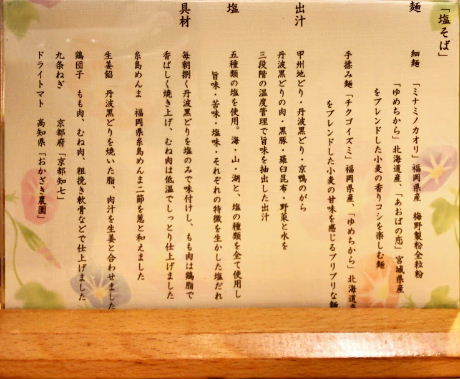 「塩そば」
麺
細麺 「ミナミノカオリ」福岡県産 梅野製粉全粒粉
「ゆめちから」北海道産、「あおばの恋」宮城県産
をブレンドした小麦の香りコシを楽しむ麺
手揉み麺「チクゴイズミ」福岡県産、「ゆめちから」北海道産
をブレンドした小麦の甘味を感じるプリプリな麺
出汁
甲州地どり・丹波黒どり・京鴨のがら
丹波黒どりの肉・黒豚・羅臼昆布・野菜と水を
三段階の温度管理で旨味を抽出した出汁
塩
五種類の塩を使用。海・山・湖と、塩の種類を全て使用し
旨味・苦味・塩味・それぞれの特徴を生かした塩だれ
具材
毎朝捌く丹波黒どりを塩のみで味付けし、もも肉は鶏脂で
香ばしく焼き上げ、むね肉は低温でしっとり仕上げました
糸島めんま 福岡県糸島めんま二節を葱と和えました
生姜餡 丹波黒どりを焼いた脂、肉汁を生姜と合わせました
鶏団子 もも肉、むね肉、粗挽き軟骨などで仕上げました
九条ねぎ 京都府「京都知七」
ドライトマト 高知県「おかざき農園」